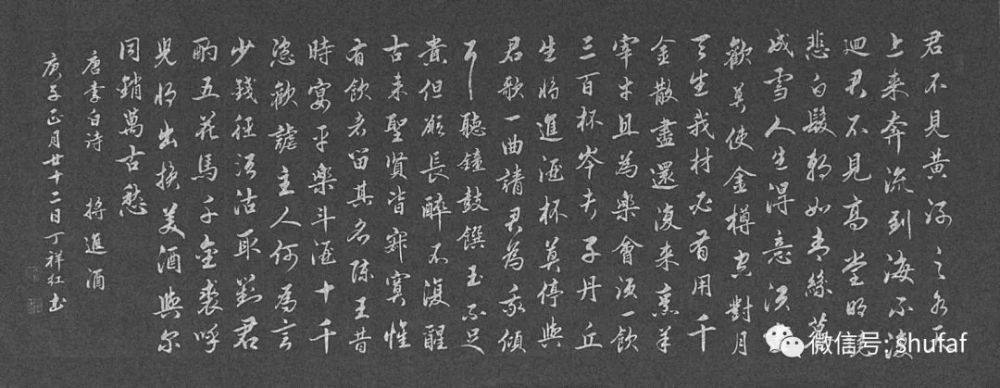 君不見黃河之水天
上来奔流到海不復
迴君不見高堂明鏡
悲白髮朝如青絲暮
成雪人生得意須
歡莫使金樽空對月
天生我材必有用千
金散盡還復来烹羊
宰牛且為樂會須一飲
三百杯岑夫子丹丘
生將進酒杯莫停與
君歌一曲請君為我傾
耳聽鐘鼓饌玉不足
貴但願長醉不復醒
古来聖賢皆寂寞惟
有飲者留其名陳王昔
時宴平樂斗酒十千
恣歡謔主人何為言
少錢徑須沽取對君
酌五花馬千金裘呼
兒將出換美酒與尔
同銷萬古愁
唐李白诗 將進酒
庚子正月廿十二日丁祥红书
微信号: shufaf